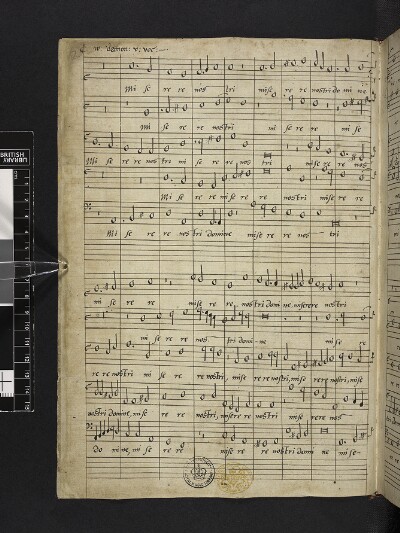 w. damon: v. voc.
mi se re re nos tri mise re re nostri do mi ne
mi se re re nostri mi se re re mi se
Mi se re re nos tri mi se re re nos tri mise re re nos
Mi se re re mi se re re nostri mise re re
Mi se re re nos tri domine mise re re nos tri
mi se re re mise re re nostri domi ne miserere nostri
mi se re re nos tri domi ne mi se
re re nostri mi se re re nostri, mise re re nostri, mise rere nostri, mise
nostri domine, mise re re nostri, misere re nostri mise rere nos
Do mi ne, mi se re re mise re re nostri domi ne mise
BRITISH
LIBRARY